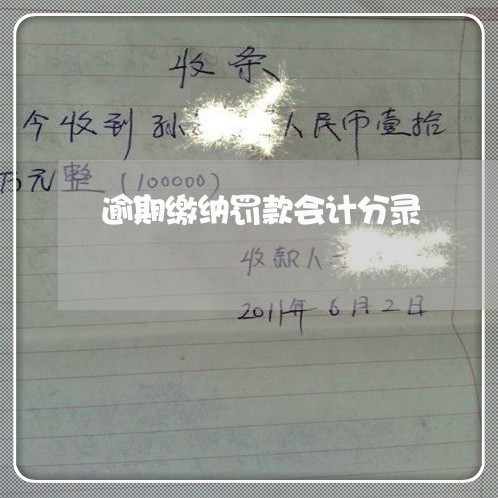 收条
今收到孙 人民币壹拾
万元整(100000)
逾期缴纳罚款会计分录
收款人
2011年6月2日